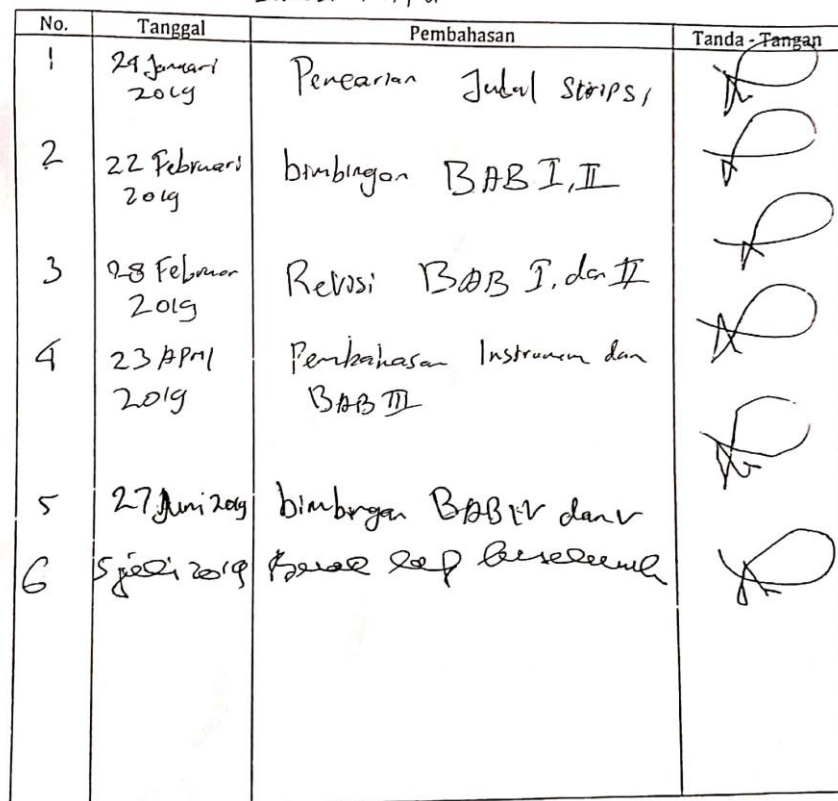 No. Tanggal Pembahasan Tanda - Tangan
1 24 Januari 2019 Pencarian Judul Skripsi
2 22 Februari 2019 bimbingan BAB I, II
3 28 Februari 2019 Revisi BAB I, dan II
4 23 April 2019 Pembahasan Instrumen dan BAB III
5 27 Juni 2019 bimbingan BAB IV dan V
6 5 juli 2019